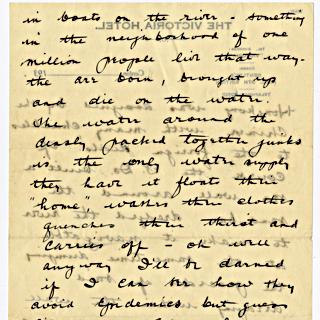 in boats on the river - something
in the neighborhood of one
million people live that way -
the are born, brought up
and die on the water.
The water around the
closely packed together junks
is the only water supply
they have it floats their
"home", washes their clothes
quenches their thirst and
carries off - oh well
anyway I'll be darned
if I can see how they
avoid epidemics but guess
THE VICTORIA HOTEL